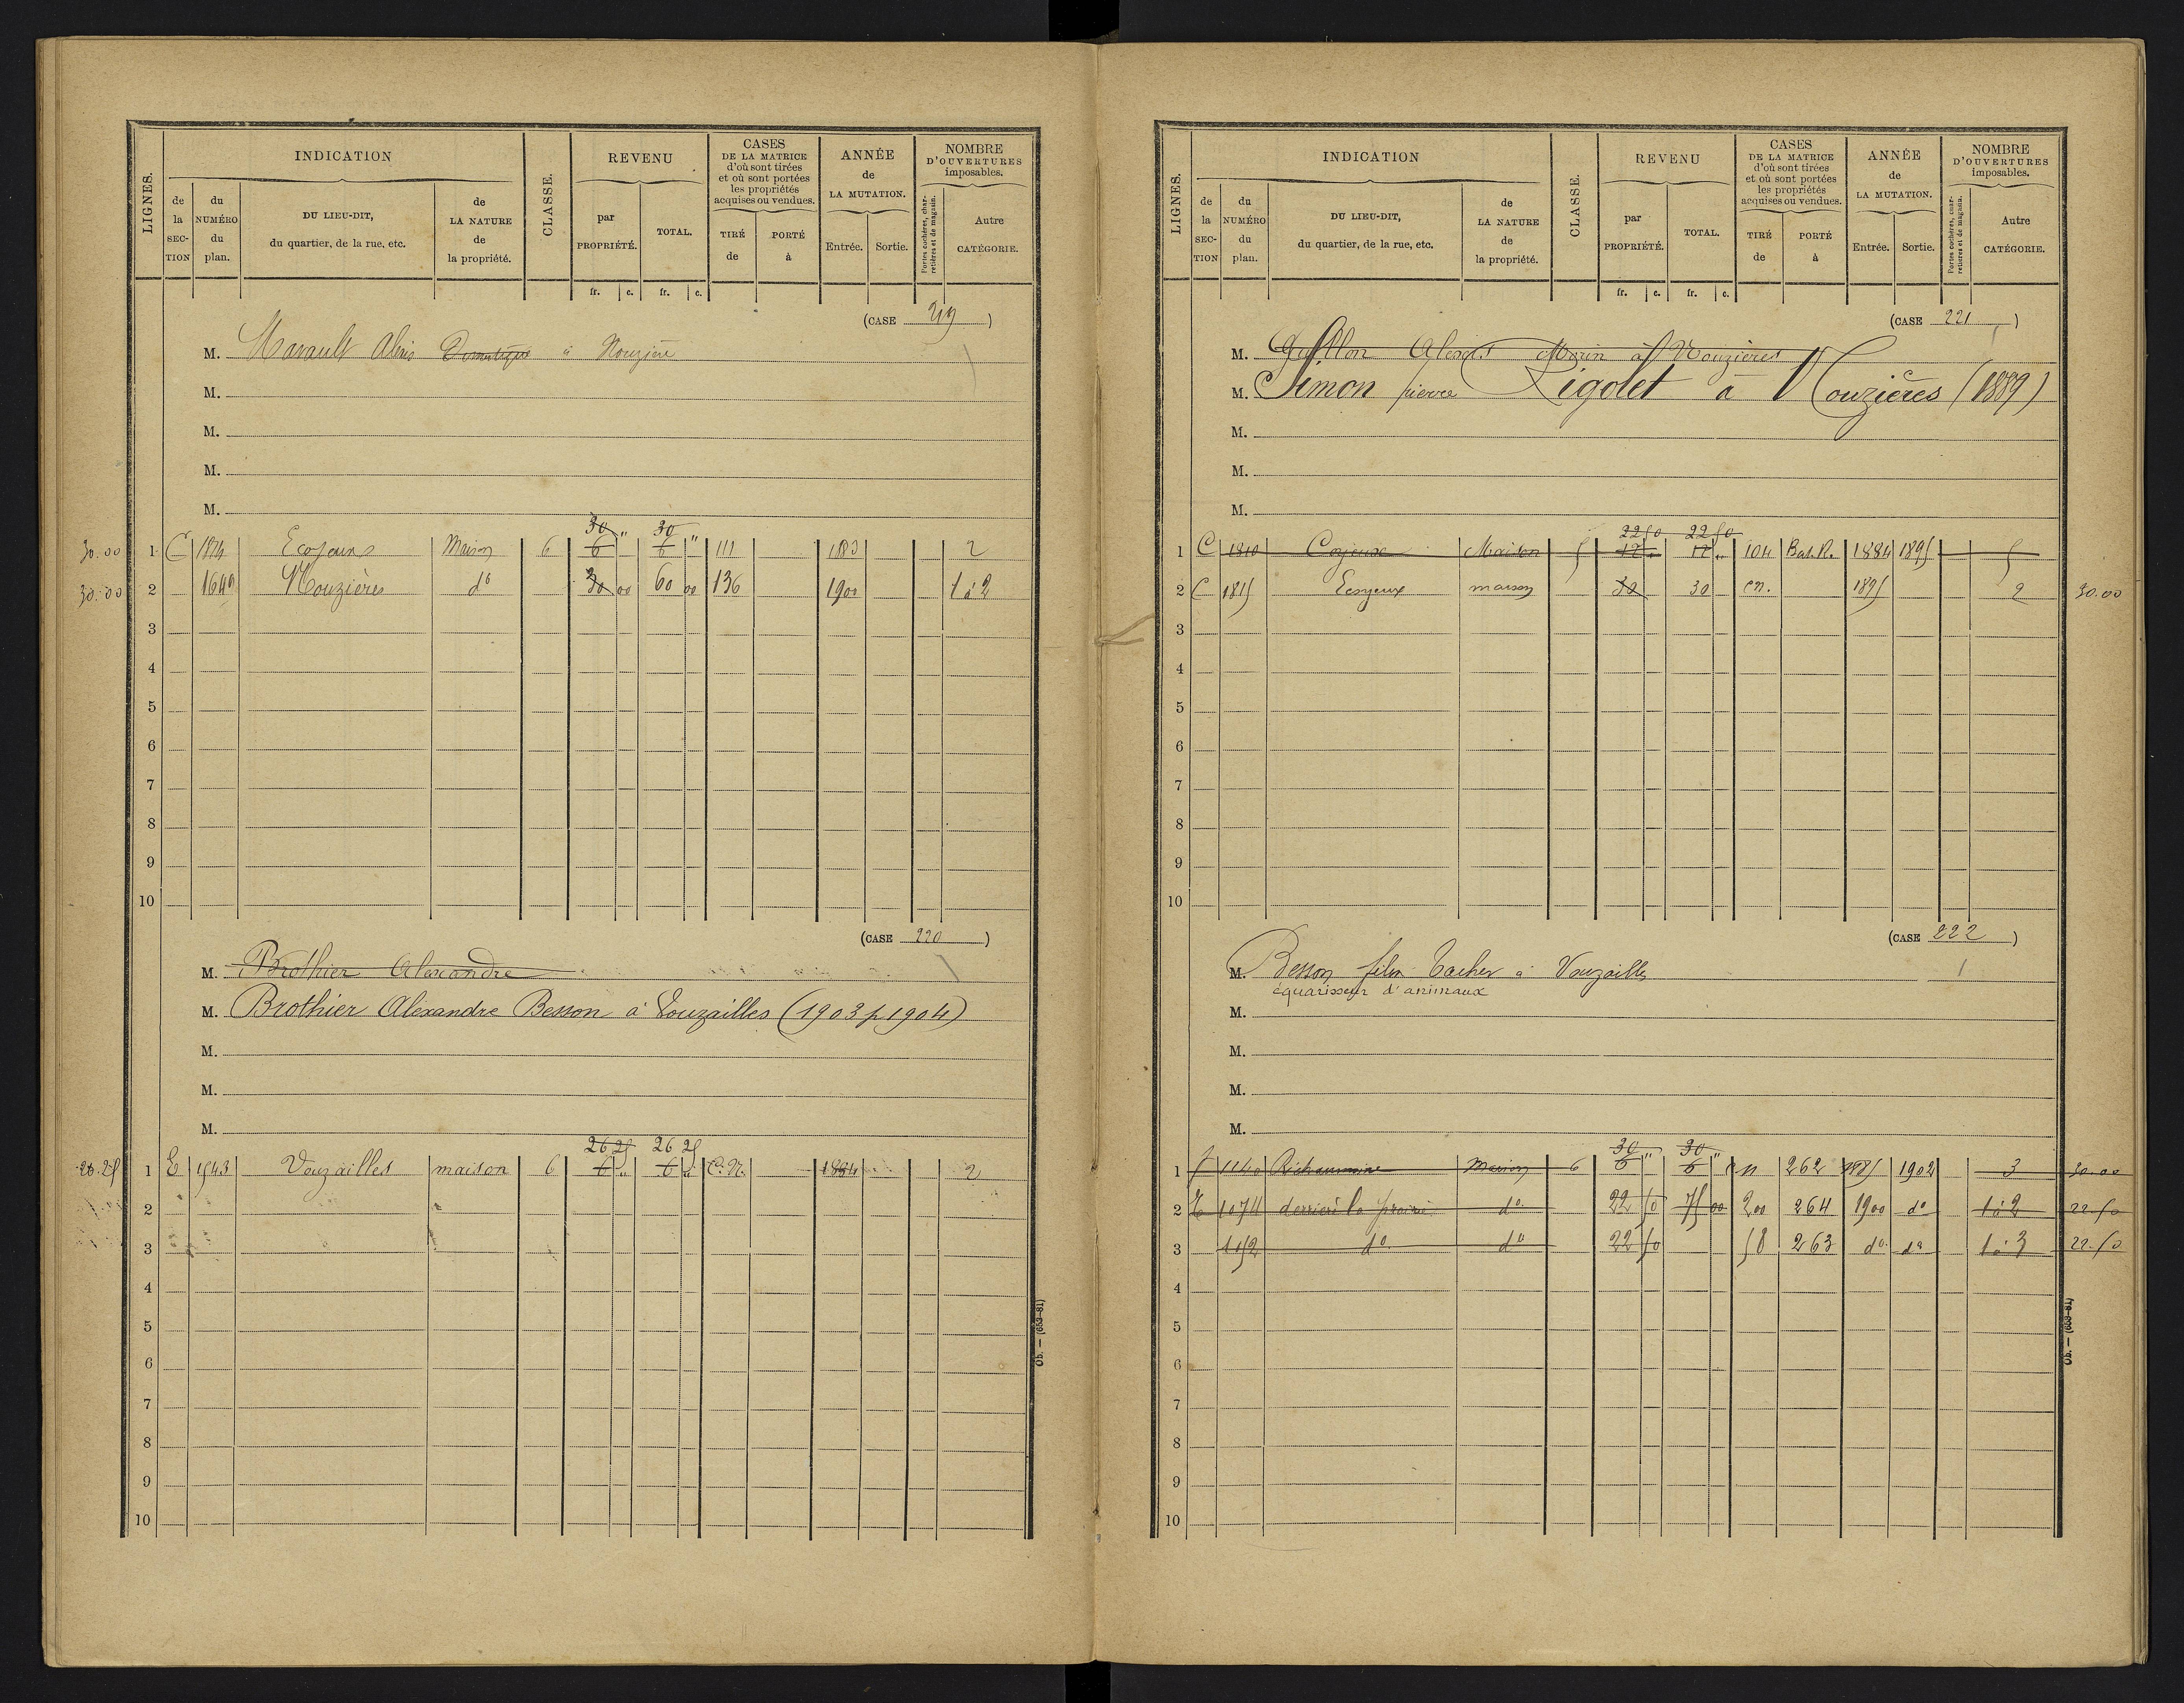 LIGNES.
INDICATION
de la SECTION
du NUMÉRO du plan.
DU LIEU-DIT, du quartier, de la rue, etc.
de LA NATURE de la propriété.
CLASSE.
REVENU
par PROPRIÉTÉ.
TOTAL.
fr. c. fr. c.
CASES DE LA MATRICE d'où sont tirées et où sont portées les propriétés acquises ou vendues.
TIRÉ de
PORTÉ à
ANNÉE de LA MUTATION.
Entrée. Sortie.
NOMBRE D'OUVERTURES imposables.
Portes cochères, charretières et de magasin.
Autre CATÉGORIE.
(CASE 219)
M. Marault Alexis à Nouzière
M.
M.
M.
M.
30 " 30 "
30.00 1 C 1874 Maison 6 6 6 111 1883 2
30.00 2 1649 Nouzières do 30 00 60 00 136 1900 1 à 2
3
4
5
6
7
8
9
10
(CASE 220)
M. Brothier Alexandre
M. Brothier Alexandre Besson à Vouzailles (1903 p 1904)
M.
M.
M.
26 25 26 25
26.25 1 E 1543 Vouzailles maison 6 6 " 6 " C.N. 1884 2
2
3
4
5
6
7
8
9
10
Ob. — (653-81)
LIGNES.
INDICATION
de la SECTION
du NUMÉRO du plan.
DU LIEU-DIT, du quartier, de la rue, etc.
de LA NATURE de la propriété.
CLASSE.
REVENU
par PROPRIÉTÉ.
TOTAL.
fr. c. fr. c.
CASES DE LA MATRICE d'où sont tirées et où sont portées les propriétés acquises ou vendues.
TIRÉ de
PORTÉ à
ANNÉE de LA MUTATION.
Entrée. Sortie.
NOMBRE D'OUVERTURES imposables.
Portes cochères, charretières et de magasin.
Autre CATÉGORIE.
(CASE 221)
M. Guillon Alexis Morin à Nouzières
M. Simon pierre Rigolet à Nouzières (1889)
M.
M.
M.
22 50 22 50
1 C 1810 Maison 5 12 " 12 " 104 Bat. R. 1884 1895 5
2 C 1815 Ecoyeux maison 30 30 cn. 1895 2 30.00
3
4
5
6
7
8
9
10
(CASE 222)
M. Besson fils à Vouzailles 1
équarisseur d'animaux
M.
M.
M.
M.
30 " 30 "
1 1140 Richaumoine Maison 6 6 6 cn 262 1885 1902 3 30.00
2 E 1074 derrière la prairie do 22 50 75 00 200 264 1900 do 1 à 2 22.50
3 1152 do do 22 50 58 263 do do 1 à 3 22.50
4
5
6
7
8
9
10
Ob. — (653-81)